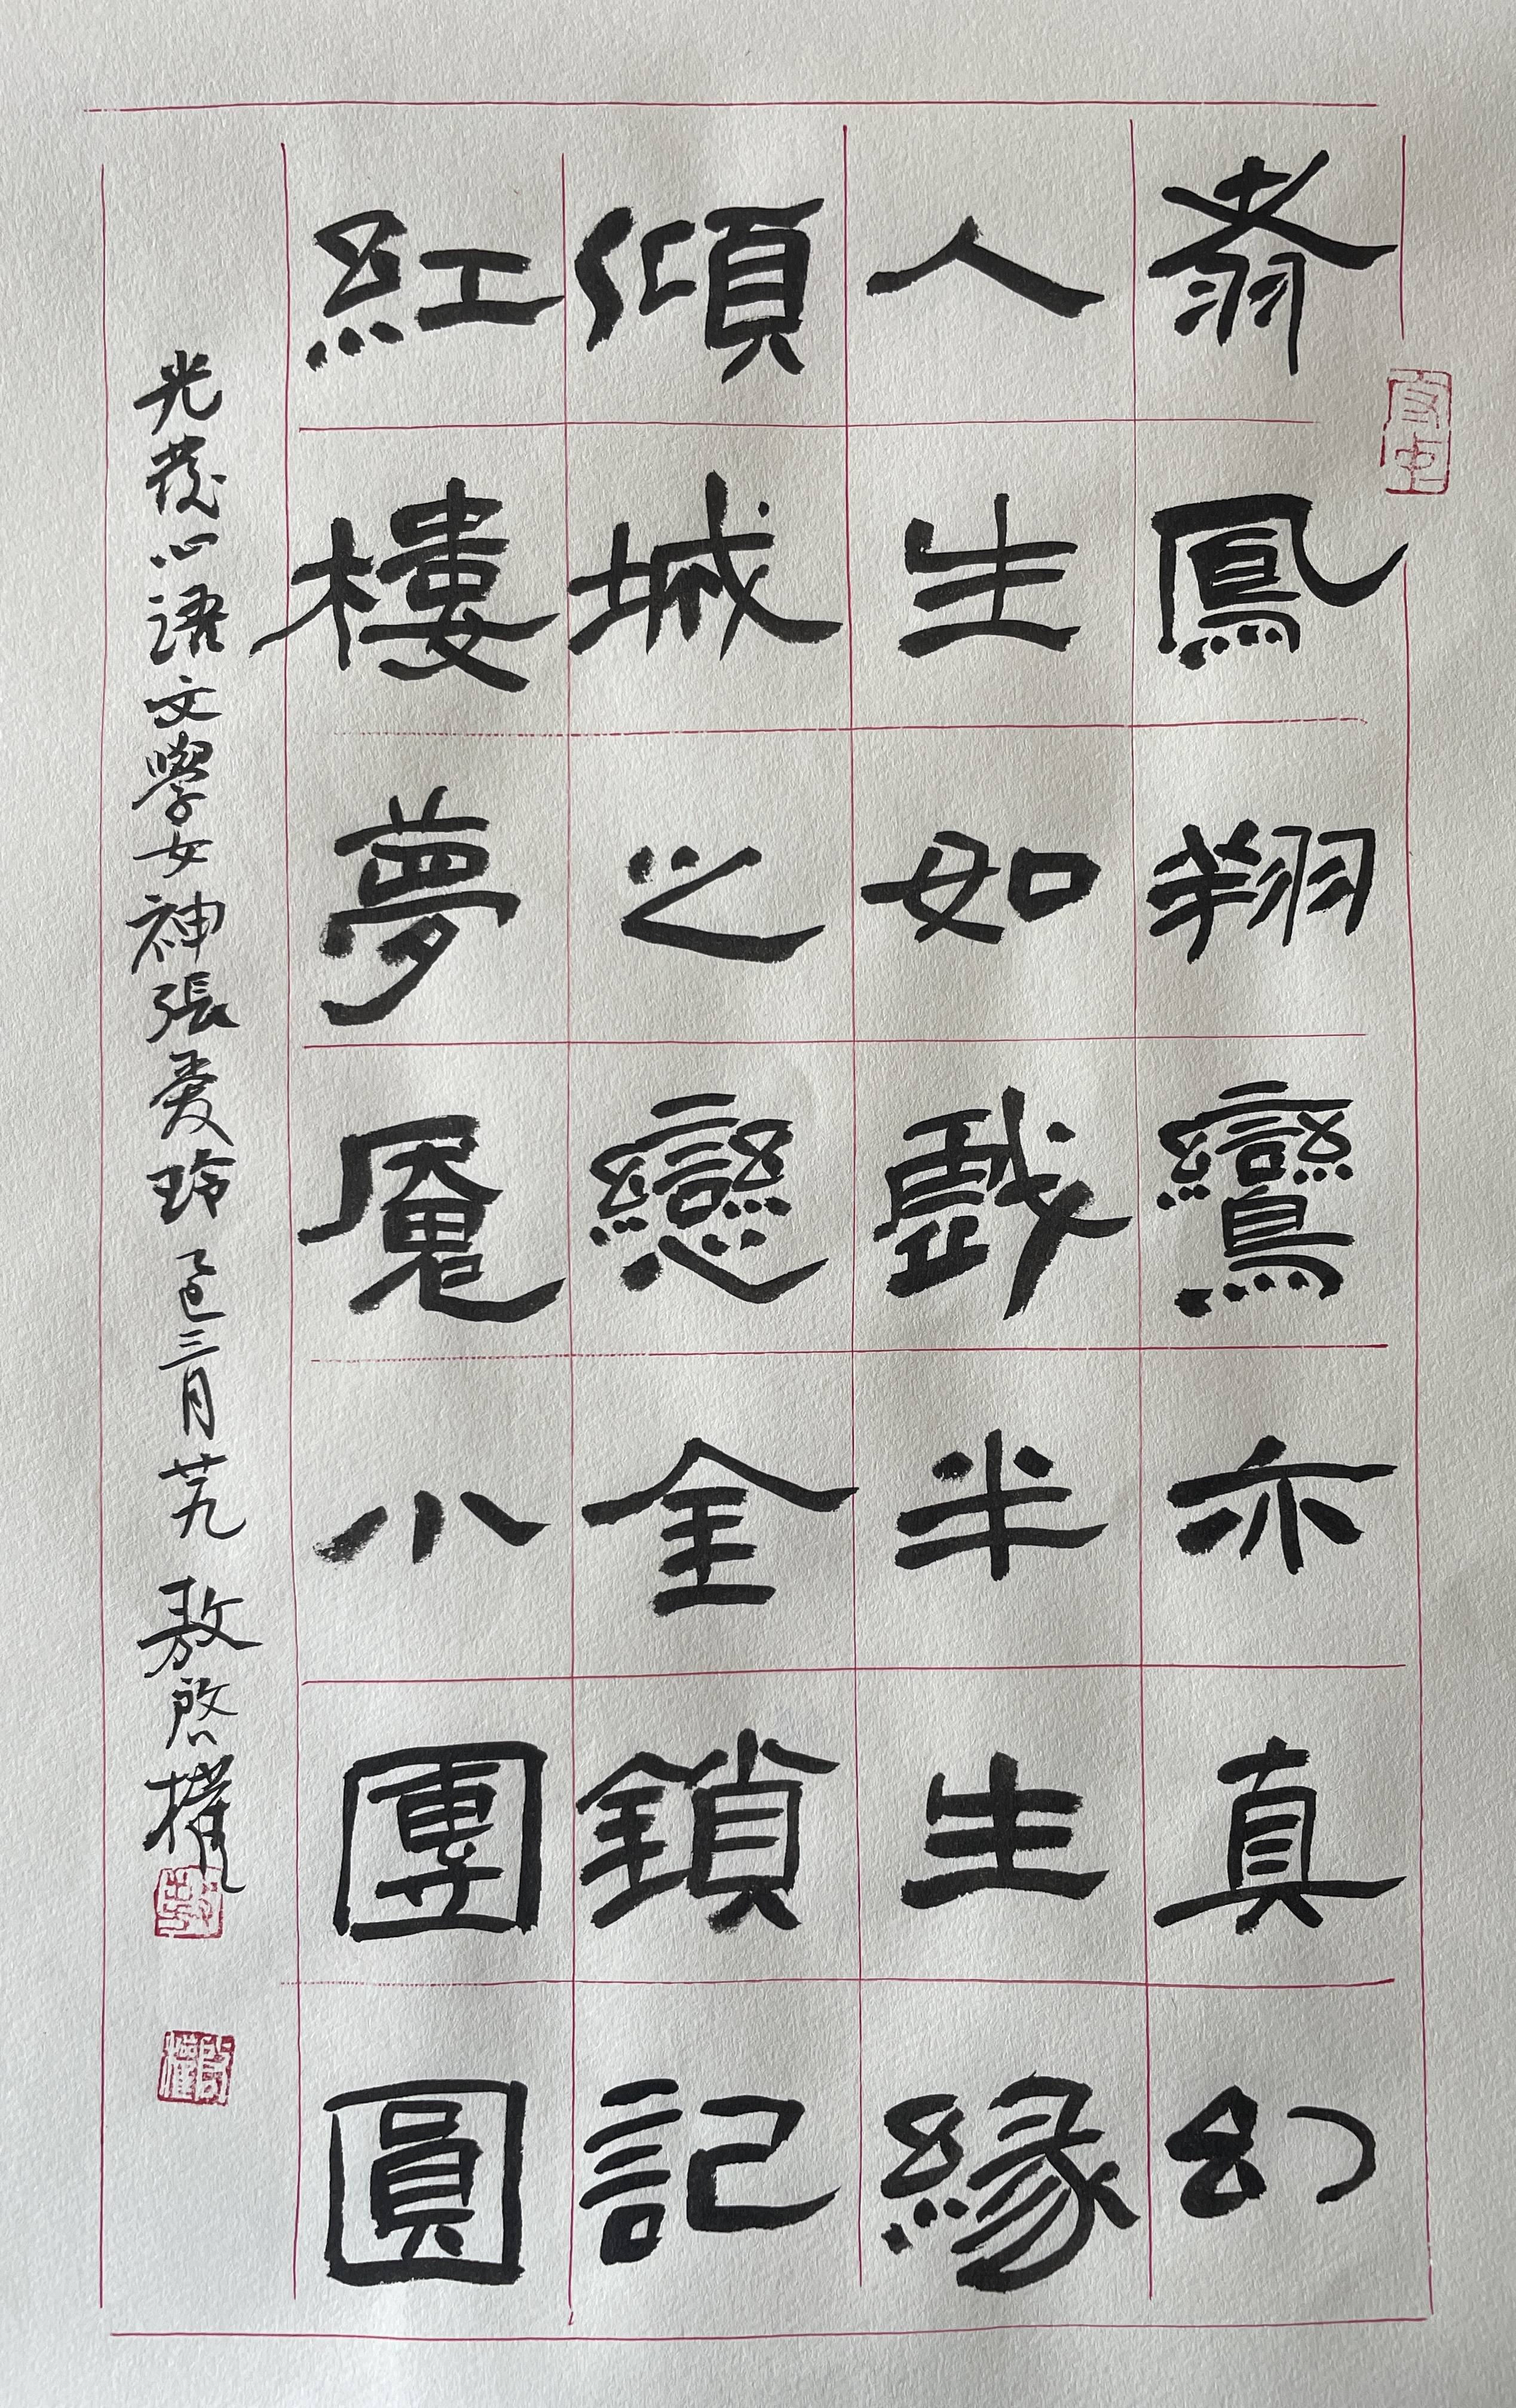 翥鳳翔鸞亦真幻
人生如戲半生緣
傾城之戀金鎖記
紅樓夢魘小團圓
光茂心語文學女神張愛玲乙巳三月廿九敖啓權
啓權